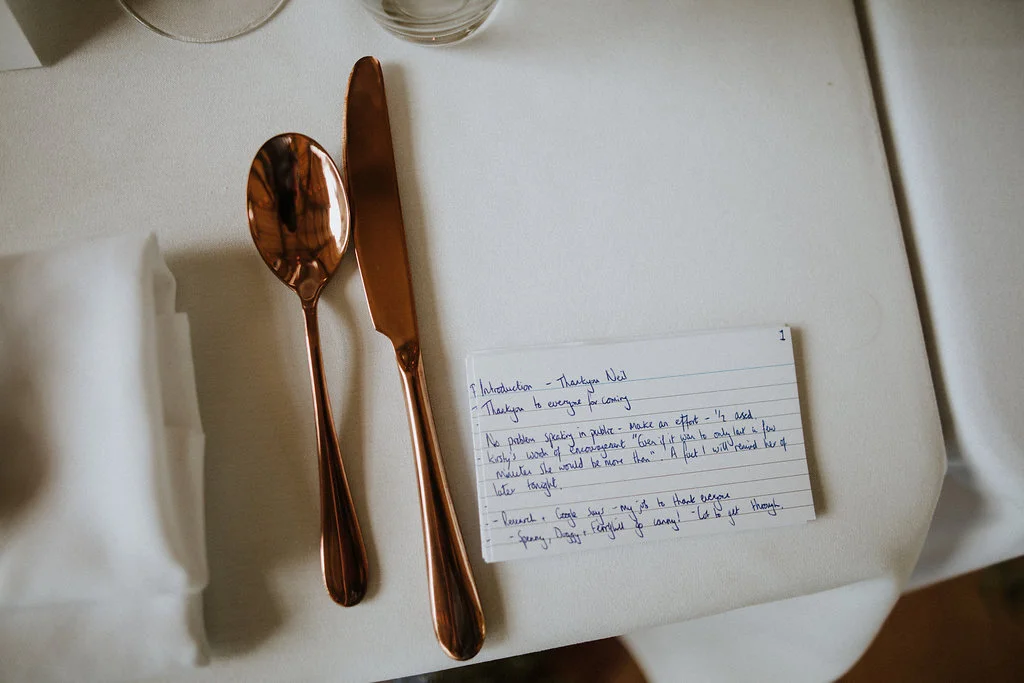 1
Introduction - Thankyou Neil
- Thankyou to everyone for coming
No problem speaking in public - Make an effort - ½ assed.
- Kirsty's words of encouragement "Even if it was to only last a few
minutes she would be more than". A fact I will remind her of
later tonight.
- Research, Google Says - My job to thank everyone
- Spenny, Duggy, go canny! - Lot to get through.